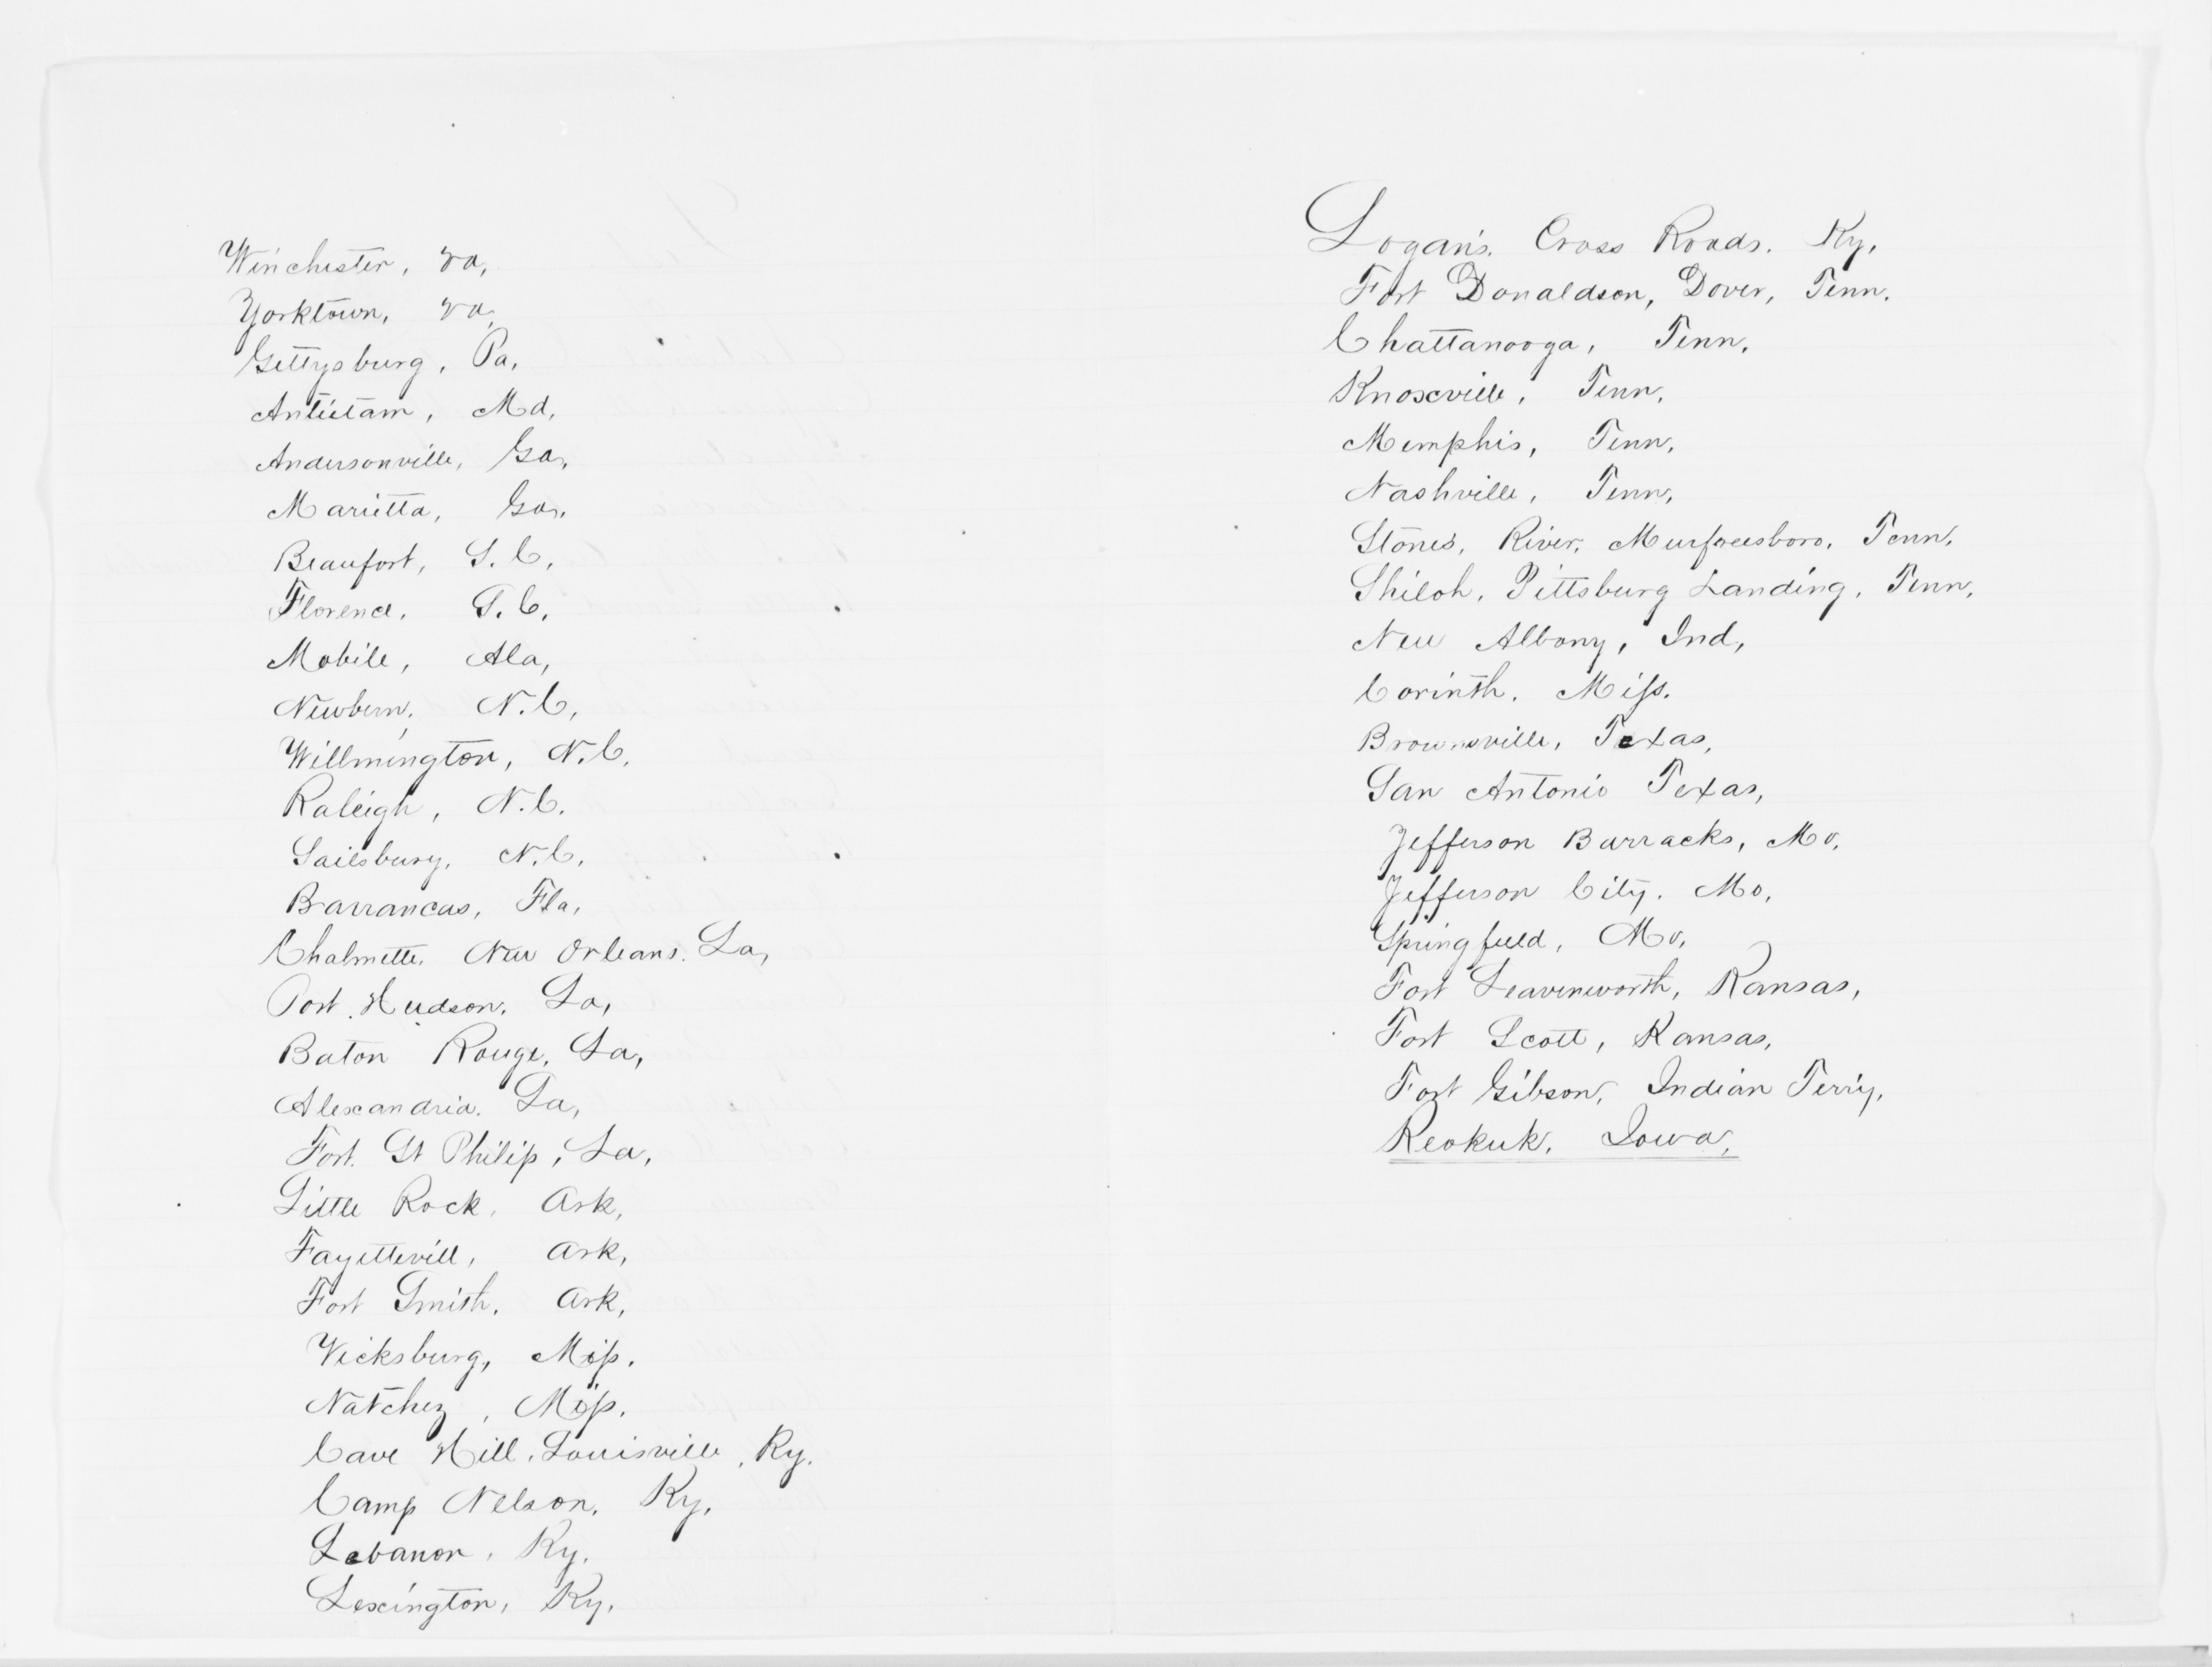 Winchester, Va,
Yorktown, Va,
Gettysburg, Pa,
Antietam, Md,
Andersonville, Ga,
Marietta, Ga,
Beaufort, S.C,
Florence, S.C,
Mobile, Ala,
Newbern, N.C,
Willmington, N.C,
Raleigh, N.C.
Sailsbury, N.C,
Barrancas, Fla,
Chalmette, New Orleans. La,
Port Hudson, La,
Baton Rouge, La,
Alexandria. La,
Fort. St Philip, La,
Little Rock, Ark,
Fayettevill, Ark,
Fort Smith, Ark,
Vicksburg, Miss.
Natchez, Miss.
Cave Hill, Louisville, Ky.
Camp Nelson, Ky,
Lebanon, Ky,
Lexington, Ky,
Logan's. Cross Roads. Ky,
Fort Donaldson, Dover, Tenn.
Chattanooga, Tenn,
Knoxville, Tenn,
Memphis, Tenn,
Nashville, Tenn,
Stones, River, Murfreesboro, Tenn,
Shiloh, Pittsburg Landing, Tenn,
New Albany, Ind,
Corinth, Miss.
Brownsville, Texas,
San Antonio Texas,
Jefferson Barracks, Mo,
Jefferson City. Mo,
Springfield, Mo,
Fort Leavenworth, Kansas,
Fort Scott, Kansas,
Fort Gibson, Indian Terr'y,
Keokuk, Iowa,